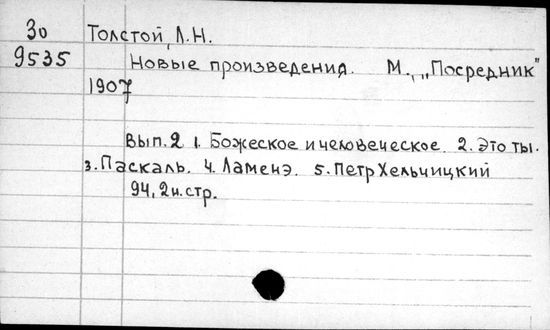 30 Толстой, Л.Н.
9535 Новые произведения. М., „Посредник"
1907
Вып. 2 1. Божеское и человеческое. 2. Это ты.
3. Паскаль. 4. Ламенэ. 5. Петр Хельчицкий
94, 2н.стр.